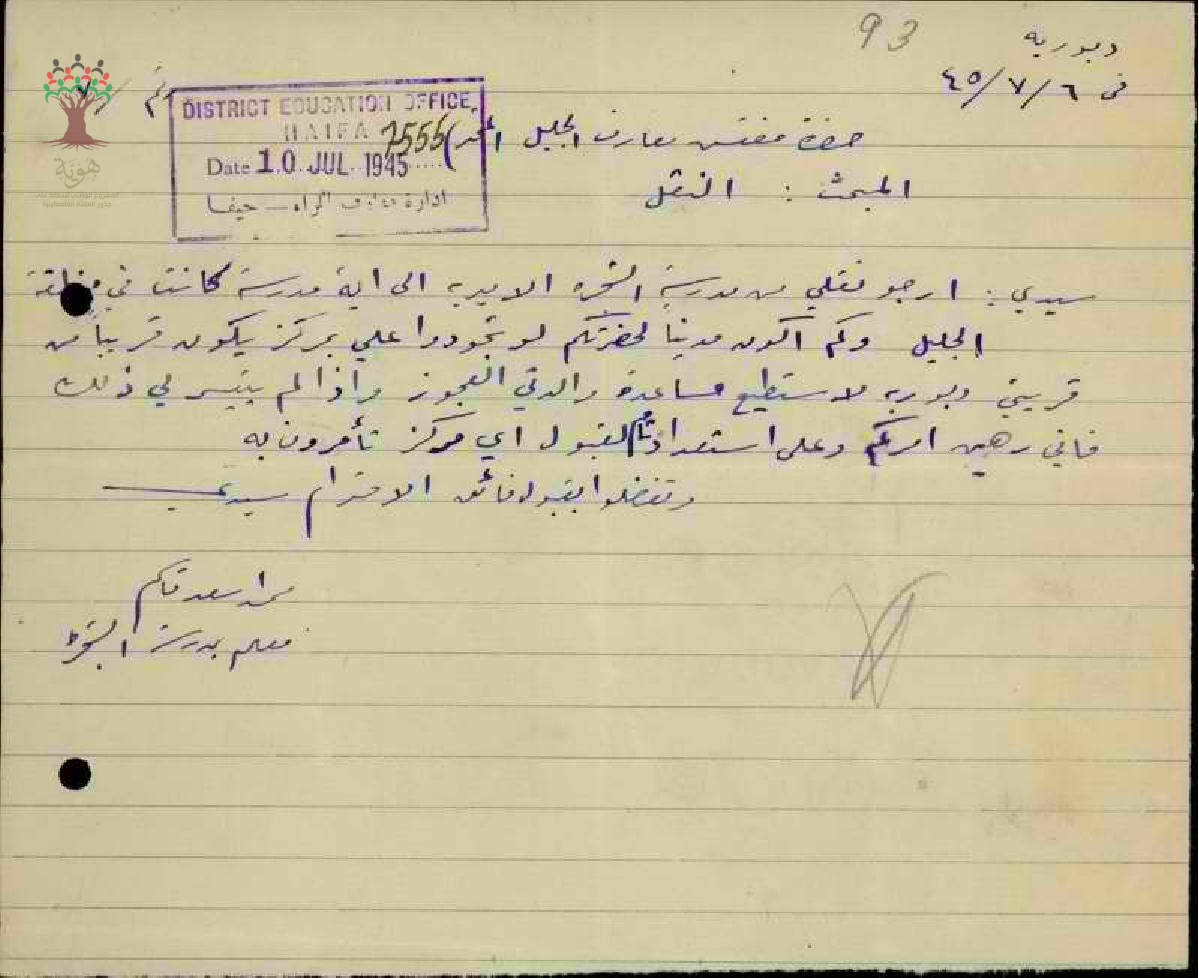 93
دبوريه
في ٦/٧/٤٥
DISTRICT EDUCATION OFFICE,
HAIFA
7555
Date 10 JUL 1945
ادارة معارف اللواء - حيفا
هويّة
حضرة مفتش معارف الجليل
المبحث : النقل
سيدي : ارجو نقلي من مدرسة الشجره الاميريه الى اية مدرسة كانت في منطقة
الجليل وكم اكون مديناً لحضرتكم لو تجودوا علي بمركز يكون قريباً من
قريتي دبوريه لاستطيع مساعدة والدتي العجوز واذا لم يتيسر لي ذلك
فاني رهين امركم وعلى استعداد تام لقبول اي مركز تأمرون به
وتفضلوا بقبول فائق الاحترام سيدي
اسعد قاسم
معلم مدرسة الشجرة